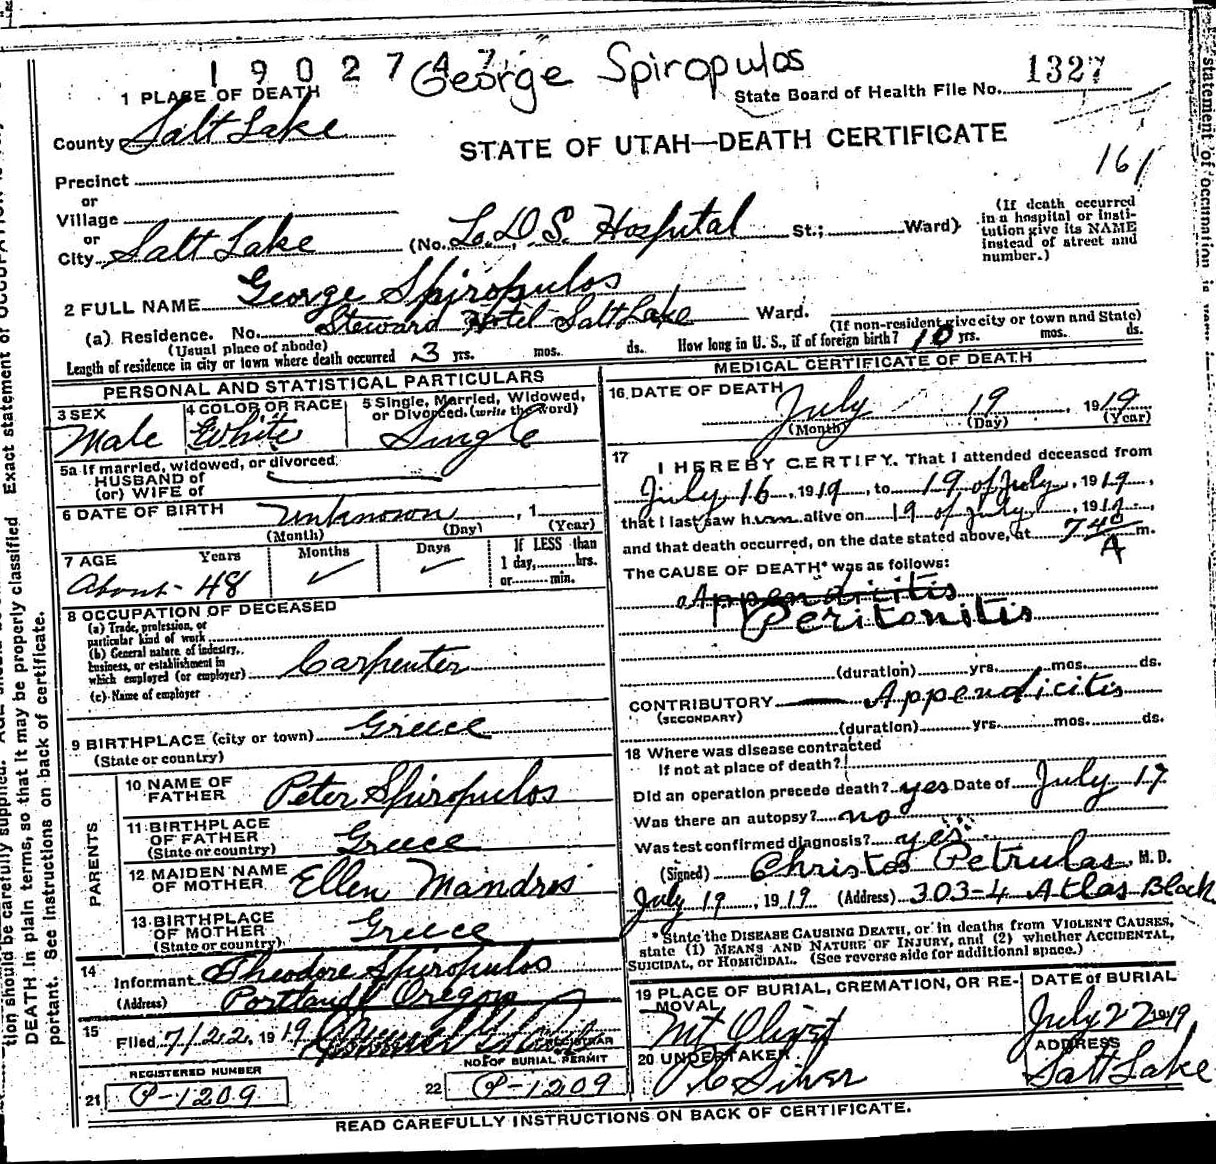 1902747 George Spiropulos
1 PLACE OF DEATH
State Board of Health File No. 1327
County Salt Lake
STATE OF UTAH—DEATH CERTIFICATE
161
Precinct
or
Village
or
City Salt Lake (No. L.D.S. Hospital St.; Ward)
(If death occurred in a hospital or insti-
tution give its NAME
instead of street and
number.)
2 FULL NAME George Spiropulos
(a) Residence. No. Steward Hotel Salt Lake Ward.
(Usual place of abode) (If non-resident give city or town and State)
Length of residence in city or town where death occurred 3 yrs. mos. ds. How long in U. S., if of foreign birth? 10 yrs. mos. ds.
PERSONAL AND STATISTICAL PARTICULARS
3 SEX Male
4 COLOR OR RACE White
5 Single, Married, Widowed,
or Divorced, (write the word)
Single
5a If married, widowed, or divorced
HUSBAND of
(or) WIFE of
6 DATE OF BIRTH Unknown , 1
(Month) (Day) (Year)
7 AGE Years Months Days If LESS than
1 day, hrs.
or min.
About - 48 ✓ ✓
8 OCCUPATION OF DECEASED
(a) Trade, profession, or
particular kind of work
(b) General nature of industry,
business, or establishment in
which employed (or employer) Carpenter
(c) Name of employer
9 BIRTHPLACE (city or town) Greece
(State or country)
PARENTS
10 NAME OF
FATHER Peter Spiropulos
11 BIRTHPLACE
OF FATHER Greece
(State or country)
12 MAIDEN NAME
OF MOTHER Ellen Mandris
13 BIRTHPLACE
OF MOTHER Greece
(State or country)
14
Informant Theodore Spiropulos
(Address) Portland Oregon
15
Filed 7/22, 1919
REGISTRAR
REGISTERED NUMBER
21 P-1209
NO. OF BURIAL PERMIT
22 P-1209
MEDICAL CERTIFICATE OF DEATH
16 DATE OF DEATH
July 19, 1919
(Month) (Day) (Year)
17
I HEREBY CERTIFY, That I attended deceased from
July 16, 1919, to 19 of July, 1919,
that I last saw him alive on 19 of July, 1919,
and that death occurred, on the date stated above, at 7 40 A m.
The CAUSE OF DEATH* was as follows:
Appendicitis
Peritonitis
(duration) yrs. mos. ds.
CONTRIBUTORY Appendicitis
(SECONDARY)
(duration) yrs. mos. ds.
18 Where was disease contracted
If not at place of death?
Did an operation precede death? yes Date of July 17
Was there an autopsy? no
Was test confirmed diagnosis? yes
(Signed) Christos Petrulas, M. D.
July 19, 1919 (Address) 303-4 Atlas Block
*State the DISEASE CAUSING DEATH, or in deaths from VIOLENT CAUSES,
state (1) MEANS AND NATURE OF INJURY, and (2) whether ACCIDENTAL,
SUICIDAL, or HOMICIDAL. (See reverse side for additional space.)
19 PLACE OF BURIAL, CREMATION, OR RE-
MOVAL
Mt Olivet
DATE OF BURIAL
July 22 1919
20 UNDERTAKER
Silver
ADDRESS
Salt Lake
READ CAREFULLY INSTRUCTIONS ON BACK OF CERTIFICATE.
tion should be carefully supplied.
DEATH in plain terms, so that it may be properly classified Exact statement of OCCUPATION
portant. See instructions on back of certificate.
statement of occupation is